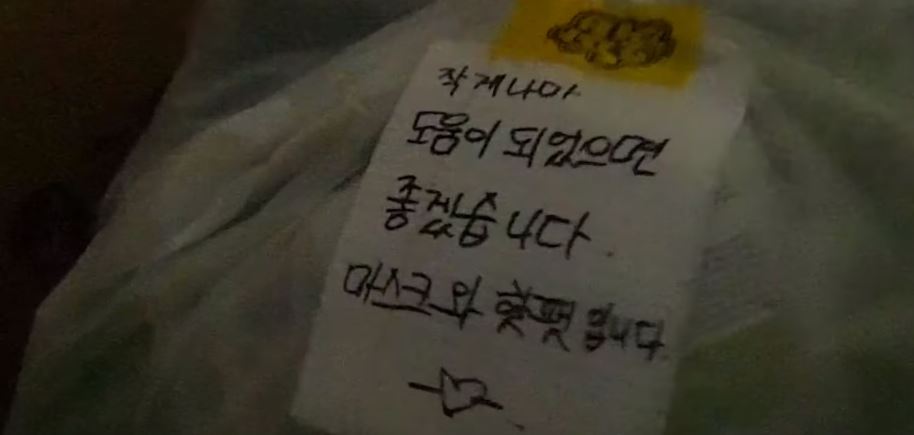 작게나마
도움이 되었으면
좋겠습니다.
마스크와 핫팻 입니다